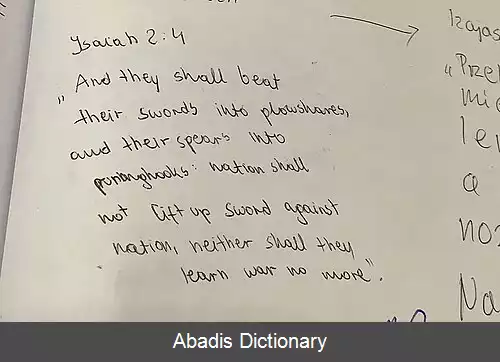 Ysaiah 2:4
„And they shall beat
their swords into plowshares,
and their spears into
pruninghooks: nation shall
not lift up sword against
nation, neither shall they
learn war no more".
Izajas
„Prze
mie
le
a
noż
Na
Abadis Dictionary